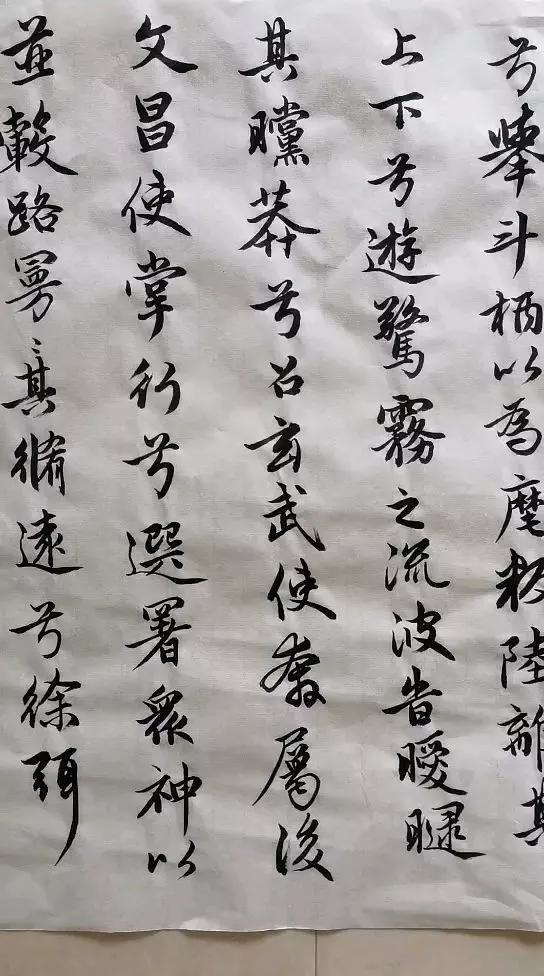 兮舉斗柄以為麾叛陸離其
上下兮遊驚霧之流波旹曖曃
其曭莽兮召玄武使奔屬後
文昌使掌行兮選署眾神以
並轂路曼〻其脩遠兮徐弭